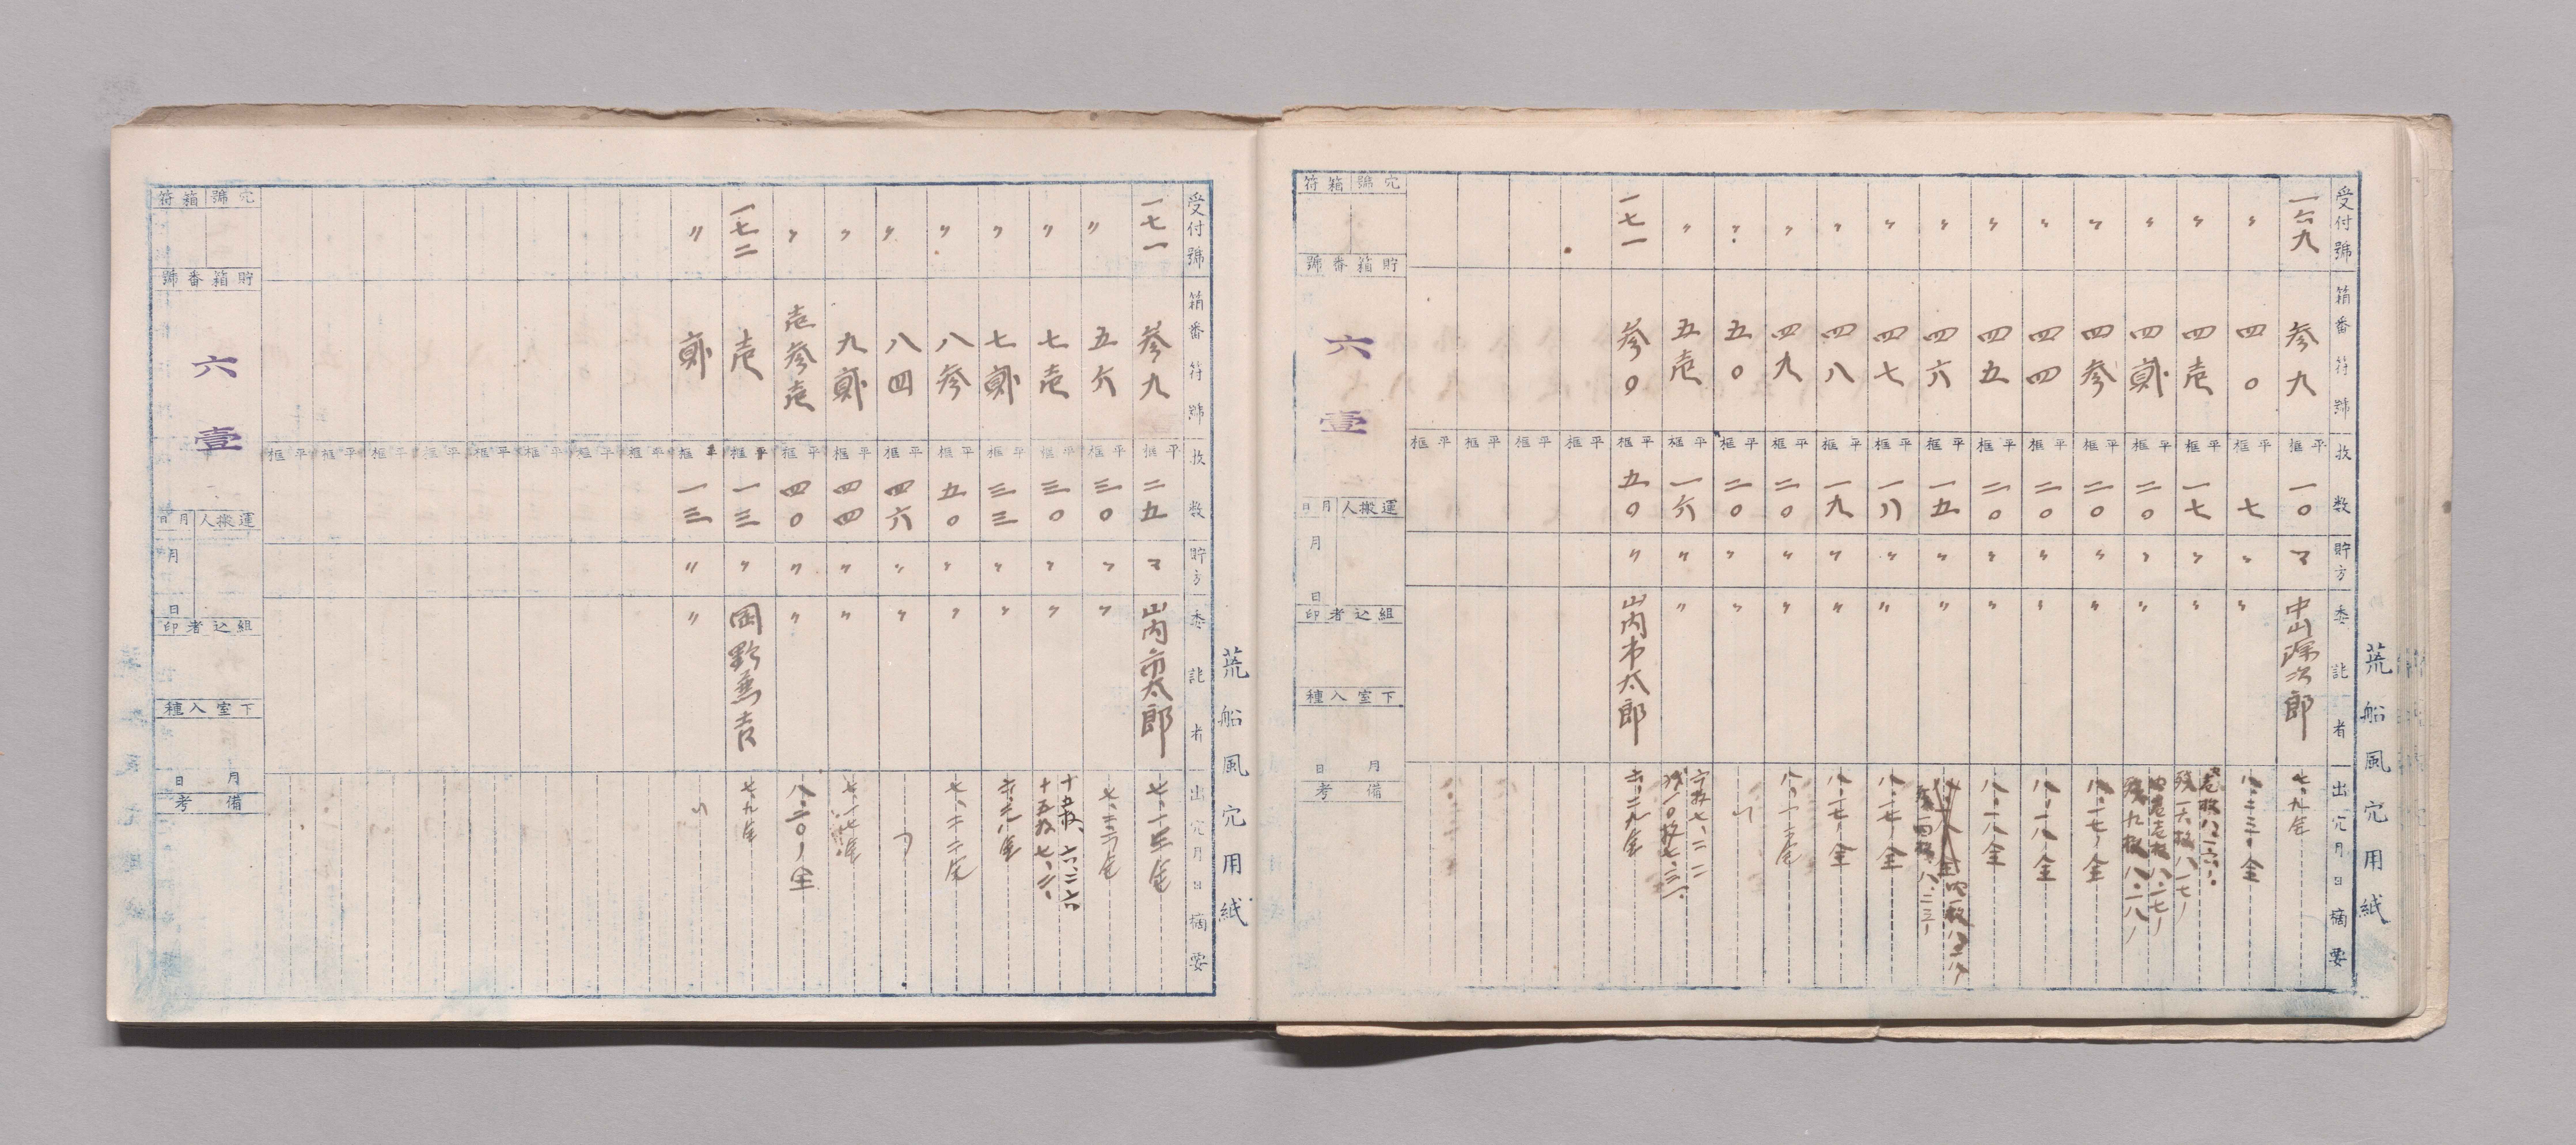 荒船風穴用紙
受付號 箱番符號 枚数 貯方 委託者 出穴月日摘要
一六九 参九 平框 一〇 マ 中山源次郎 七、九全
〃 四〇 平框 七 〃 〃 八、二三、全
〃 四壱 平框 一七 〃 〃
〃 四貮 平框 二〇 〃 〃
〃 四参 平框 二〇 〃 〃 八、一七、全
〃 四四 平框 二〇 〃 〃 八、一八全
〃 四五 平框 二〇 〃 〃 八、一八全
〃 四六 平框 一五 〃 〃
〃 四七 平框 一八 〃 〃 八、一七、全
〃 四八 平框 一九 〃 〃 八、一七、全
〃 四九 平框 二〇 〃 〃 八、一三全
〃 五〇 平框 二〇 〃 〃 〃
〃 五壱 平框 一六 〃 〃 六枚七、二二 残一〇枚七、三一、
一七一 参〇 平框 五〇 〃 山内市太郎 六、二九全
平框
平框
平框
平框
穴號 箱符
貯箱番號
六壹
運搬人 月日
月 日
組込者印
下室入種
月 日
備考
荒船風穴用紙
受付號 箱番符號 枚数 貯方 委託者 出穴月日摘要
一七一 参九 平框 二五 マ 山内市太郎 七、十五全
〃 五六 平框 三〇 〃 〃 七、二二全
〃 七壱 平框 三〇 〃 〃 十五枚、六、二六 十五枚七、二、
〃 七貮 平框 三三 〃 〃 六、二八全
〃 八参 平框 五〇 〃 〃 七、二二全
〃 八四 平框 四六 〃 〃 〃
〃 九貮 平框 四四 〃 〃 七、十七全
〃 壱参壱 平框 四〇 〃 〃 八、二〇、全
一七二 壱 平框 一三 〃 岡野兼吉 七、九全
〃 貮 平框 一三 〃 〃 〃
平框
平框
平框
平框
平框
平框
平框
平框
穴號 箱符
貯箱番號
六壹
運搬人 月日
月 日
組込者印
下室入種
月 日
備考